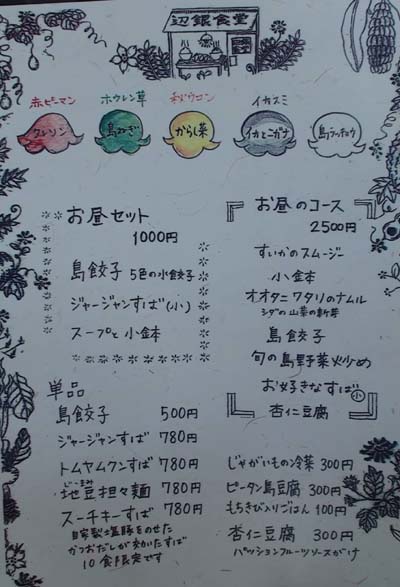 辺銀食堂
赤ピーマン
ホウレン草
秋ウコン
イカスミ
クレソン
島ねぎ
からし菜
イカとニガナ
島ラッキョウ
お昼セット
1000円
島餃子 5色の水餃子
ジャージャンすば(小)
スープと小鉢
お昼のコース
2500円
すいかのスムージー
小鉢
オオタニワタリのナムル
シダの山菜の新芽
島餃子
旬の島野菜炒め
お好きなすば 小
杏仁豆腐
単品
島餃子 500円
ジャージャンすば 780円
トムヤムクンすば 780円
じーまみ
地豆担々麺 780円
スーチキーすば 780円
自家製塩豚をのせた
かつおだしが効いたすば
10食限定です
じゃがいもの冷菜 300円
ピータン島豆腐 300円
もちきび入りごはん 100円
杏仁豆腐 300円
パッションフルーツソースがけ